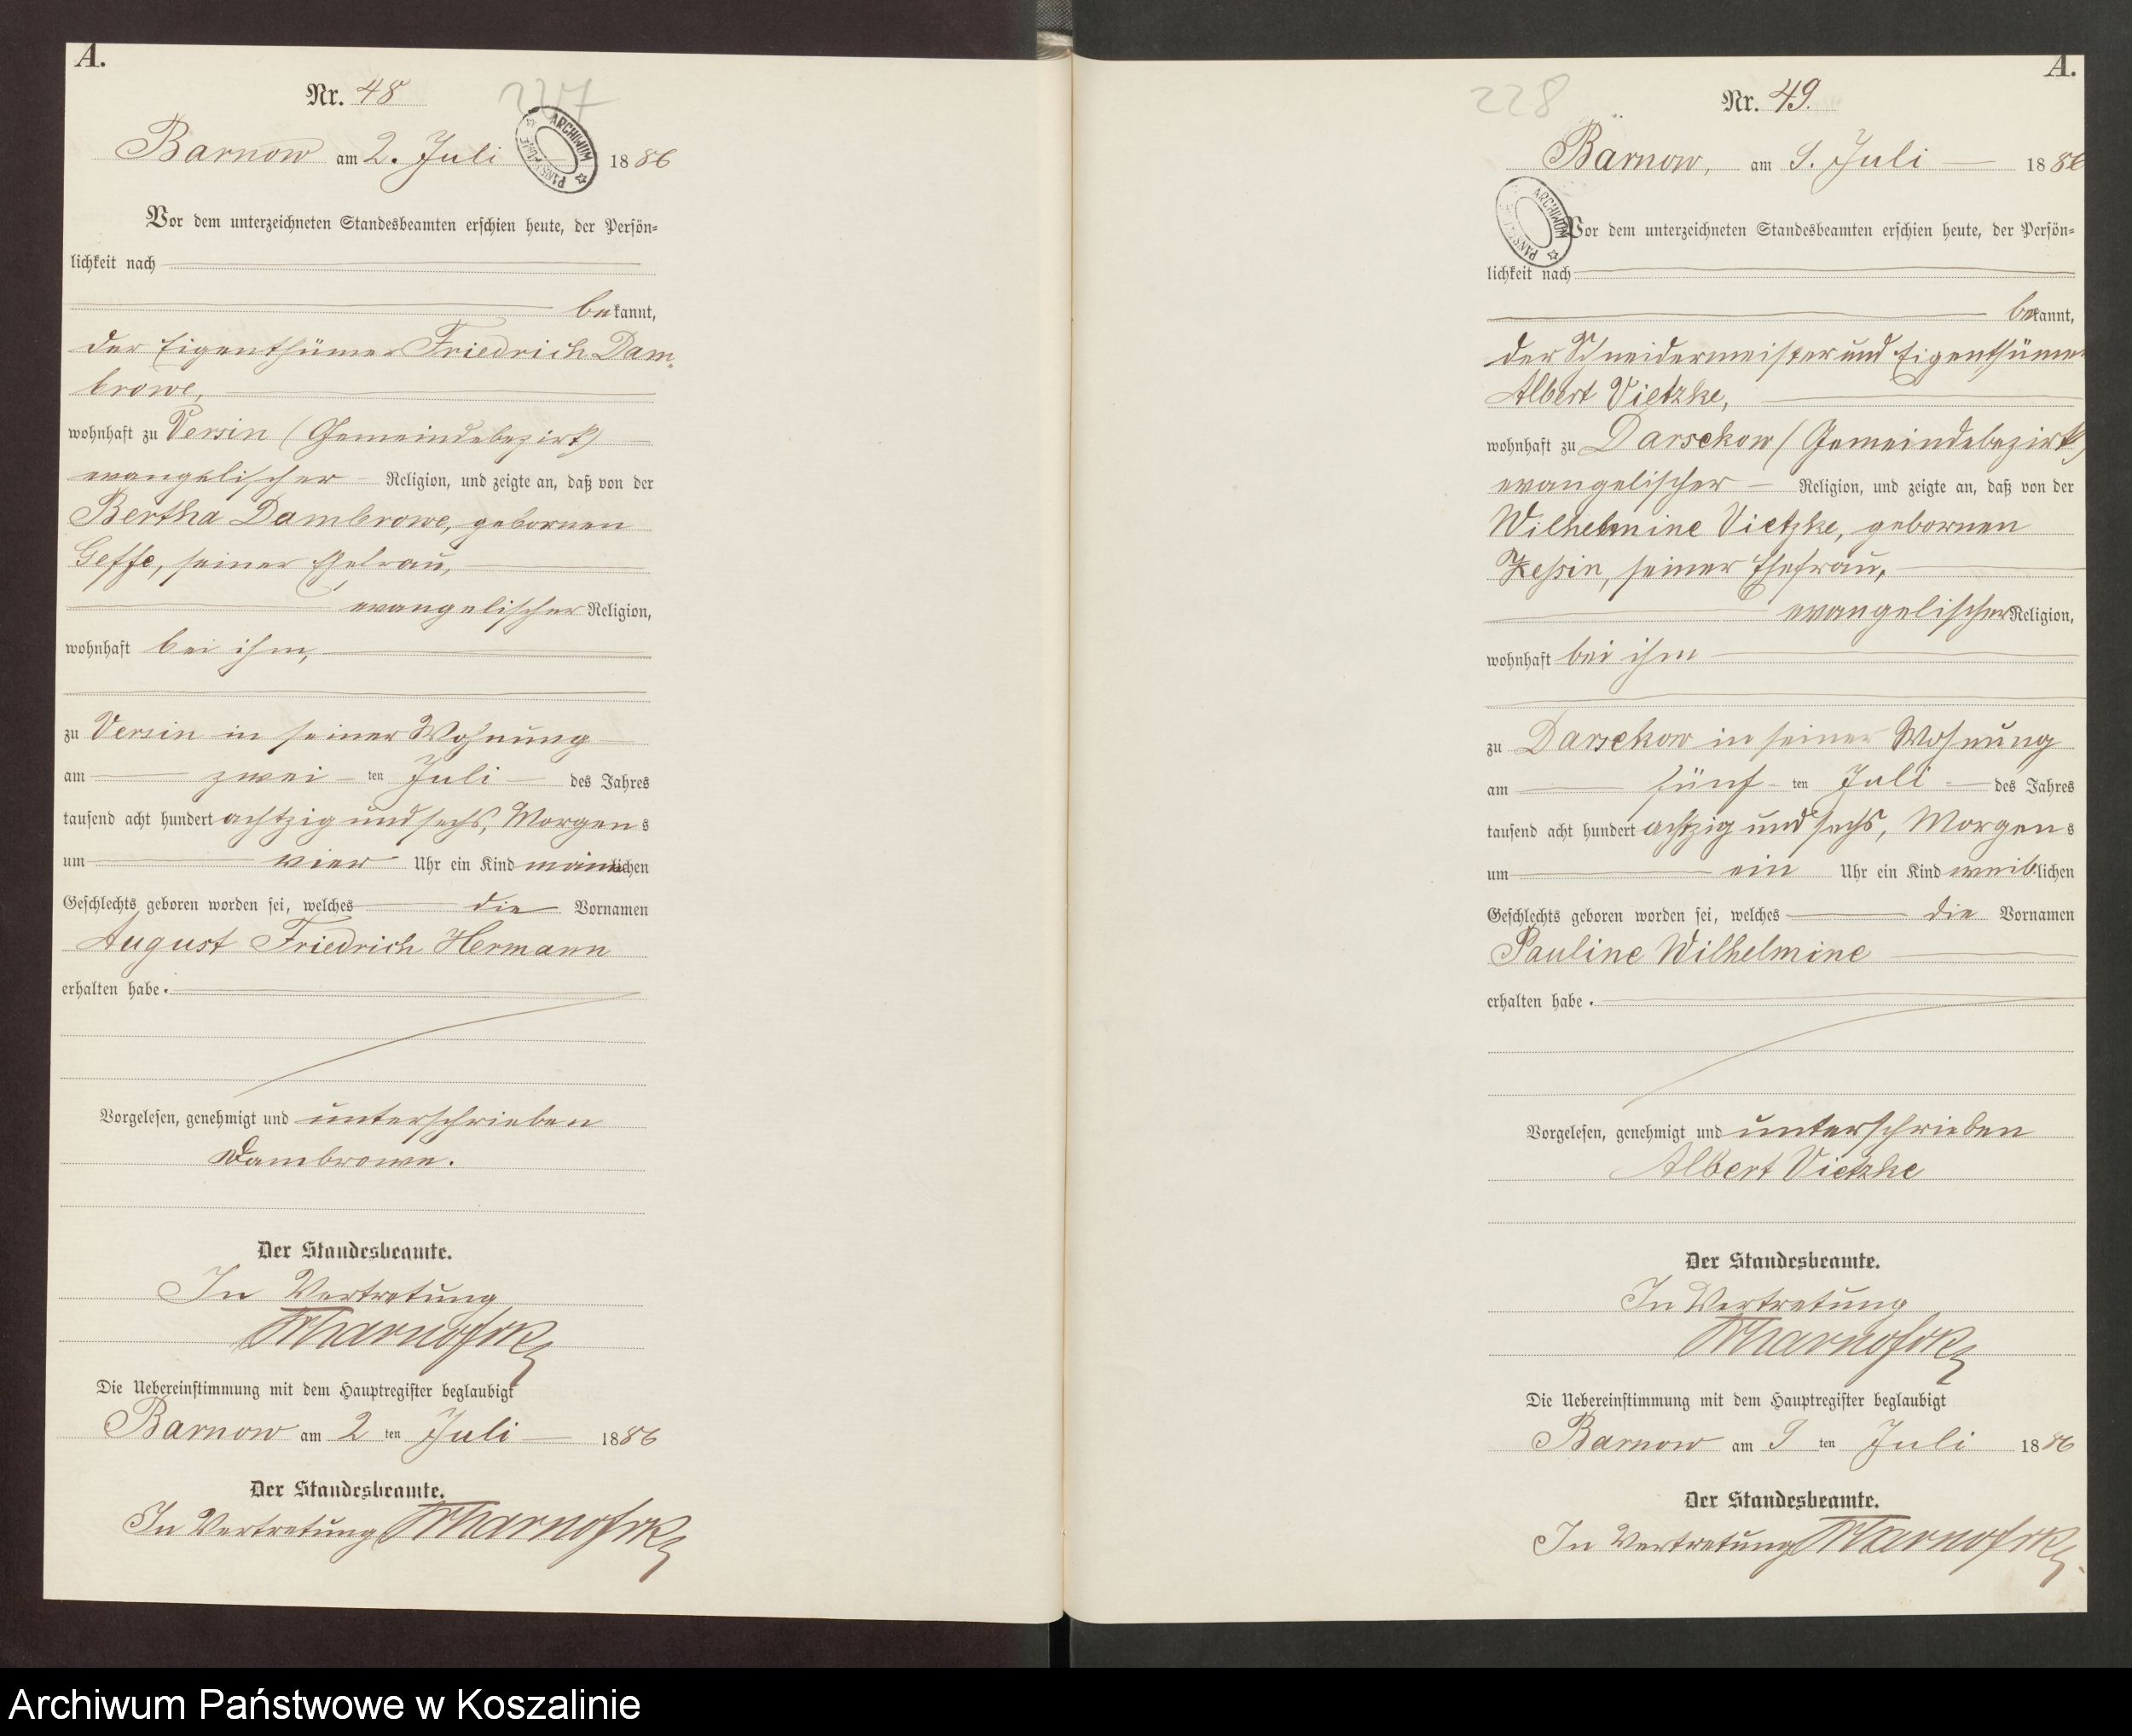 A.
Nr. 48
227
Barnow am 2. Juli 1886
ARCHIWUM PAŃSTWOWE
Vor dem unterzeichneten Standesbeamten erschien heute, der Persön-
lichkeit nach
bekannt,
der Eigenthümer Friedrich Dam-
browe,
wohnhaft zu Versin (Gemeindebezirk)
evangelischer Religion, und zeigte an, daß von der
Bertha Dambrowe, gebornen
Geffe, seiner Ehefrau,
evangelischer Religion,
wohnhaft bei ihm,
zu Versin in seiner Wohnung
am zwei ten Juli des Jahres
tausend acht hundert achtzig und sechs, Morgens
um vier Uhr ein Kind männlichen
Geschlechts geboren worden sei, welches die Vornamen
August Friedrich Hermann
erhalten habe.
Vorgelesen, genehmigt und unterschrieben
Dambrowe.
Der Standesbeamte.
In Vertretung
Die Uebereinstimmung mit dem Hauptregister beglaubigt
Barnow am 2 ten Juli 1886
Der Standesbeamte.
In Vertretung
A.
228
Nr. 49.
Barnow, am 9. Juli 1886
ARCHIWUM PAŃSTWOWE
Vor dem unterzeichneten Standesbeamten erschien heute, der Persön-
lichkeit nach
bekannt,
der Schneidermeister und Eigenthümer
Albert Vietzke,
wohnhaft zu Darsekow (Gemeindebezirk)
evangelischer Religion, und zeigte an, daß von der
Wilhelmine Vietzke, gebornen
seiner Ehefrau,
evangelischer Religion,
wohnhaft bei ihm
zu Darsekow in seiner Wohnung
am fünf ten Juli des Jahres
tausend acht hundert achtzig und sechs, Morgens
um ein Uhr ein Kind weiblichen
Geschlechts geboren worden sei, welches die Vornamen
Pauline Wilhelmine
erhalten habe.
Vorgelesen, genehmigt und unterschrieben
Albert Vietzke
Der Standesbeamte.
In Vertretung
Die Uebereinstimmung mit dem Hauptregister beglaubigt
Barnow am 9 ten Juli 1886
Der Standesbeamte.
In Vertretung
Archiwum Państwowe w Koszalinie